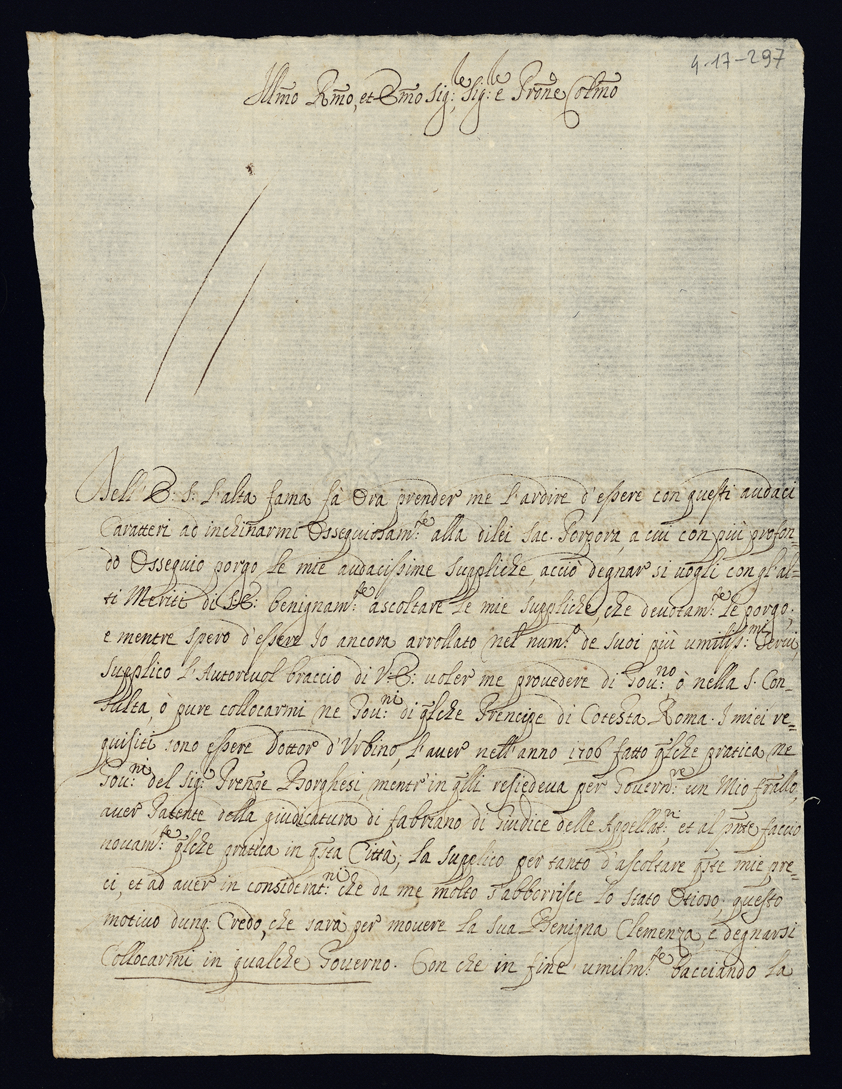 4-17-297
Illmo Rmo, et Emo Sig:le Sig:le e Prone Colmo
Dell'E: S: l'alta fama fà Ora prender me l'ardire d'essere con questi audaci
Caratteri ad inchinarmi Ossequiosam:te alla dilei Sac: Porpora, a cui con più profon=
do Ossequio porgo le mie audacissime suppliche, acciò degnar si vogli con gl'al=
ti Meriti di S.E: benignam:te ascoltare le mie suppliche, che devotam:te le porgo;
e mentre spero d'essere Io ancora arrollato nel num:o de suoi più umiliss:mi Servi,
supplico l'Autorevol braccio di V.E: voler me provedere di Gov:no ò nella S: Con=
sulta, ò pure collocarmi ne Gov:ni di qlche Prencipe di Cotesta Roma. I miei re=
quisiti sono essere Dottor d'Urbino, l'aver nell'anno 1706 fatto qlche pratica ne
Gov:ni del Sig: Prenpe Borghesi, mentr'in qlli resiedeva per Govern:re un Mio frallo,
aver Patente della giudicatura di Fabriano di Giudice delle Appellat:ni et al pnte faccio
novam:te qlche pratica in qsta Città; La supplico per tanto d'ascoltare qste mie pre=
ci, et ad aver in considerat:ni che da me molto s'abborrisce lo stato Otioso; questo
motivo dunq: Credo, che sarà per movere la sua Benigna Clemenza, e degnarsi
Collocarmi in qualche Governo. Con che in fine umilm:te bacciando la